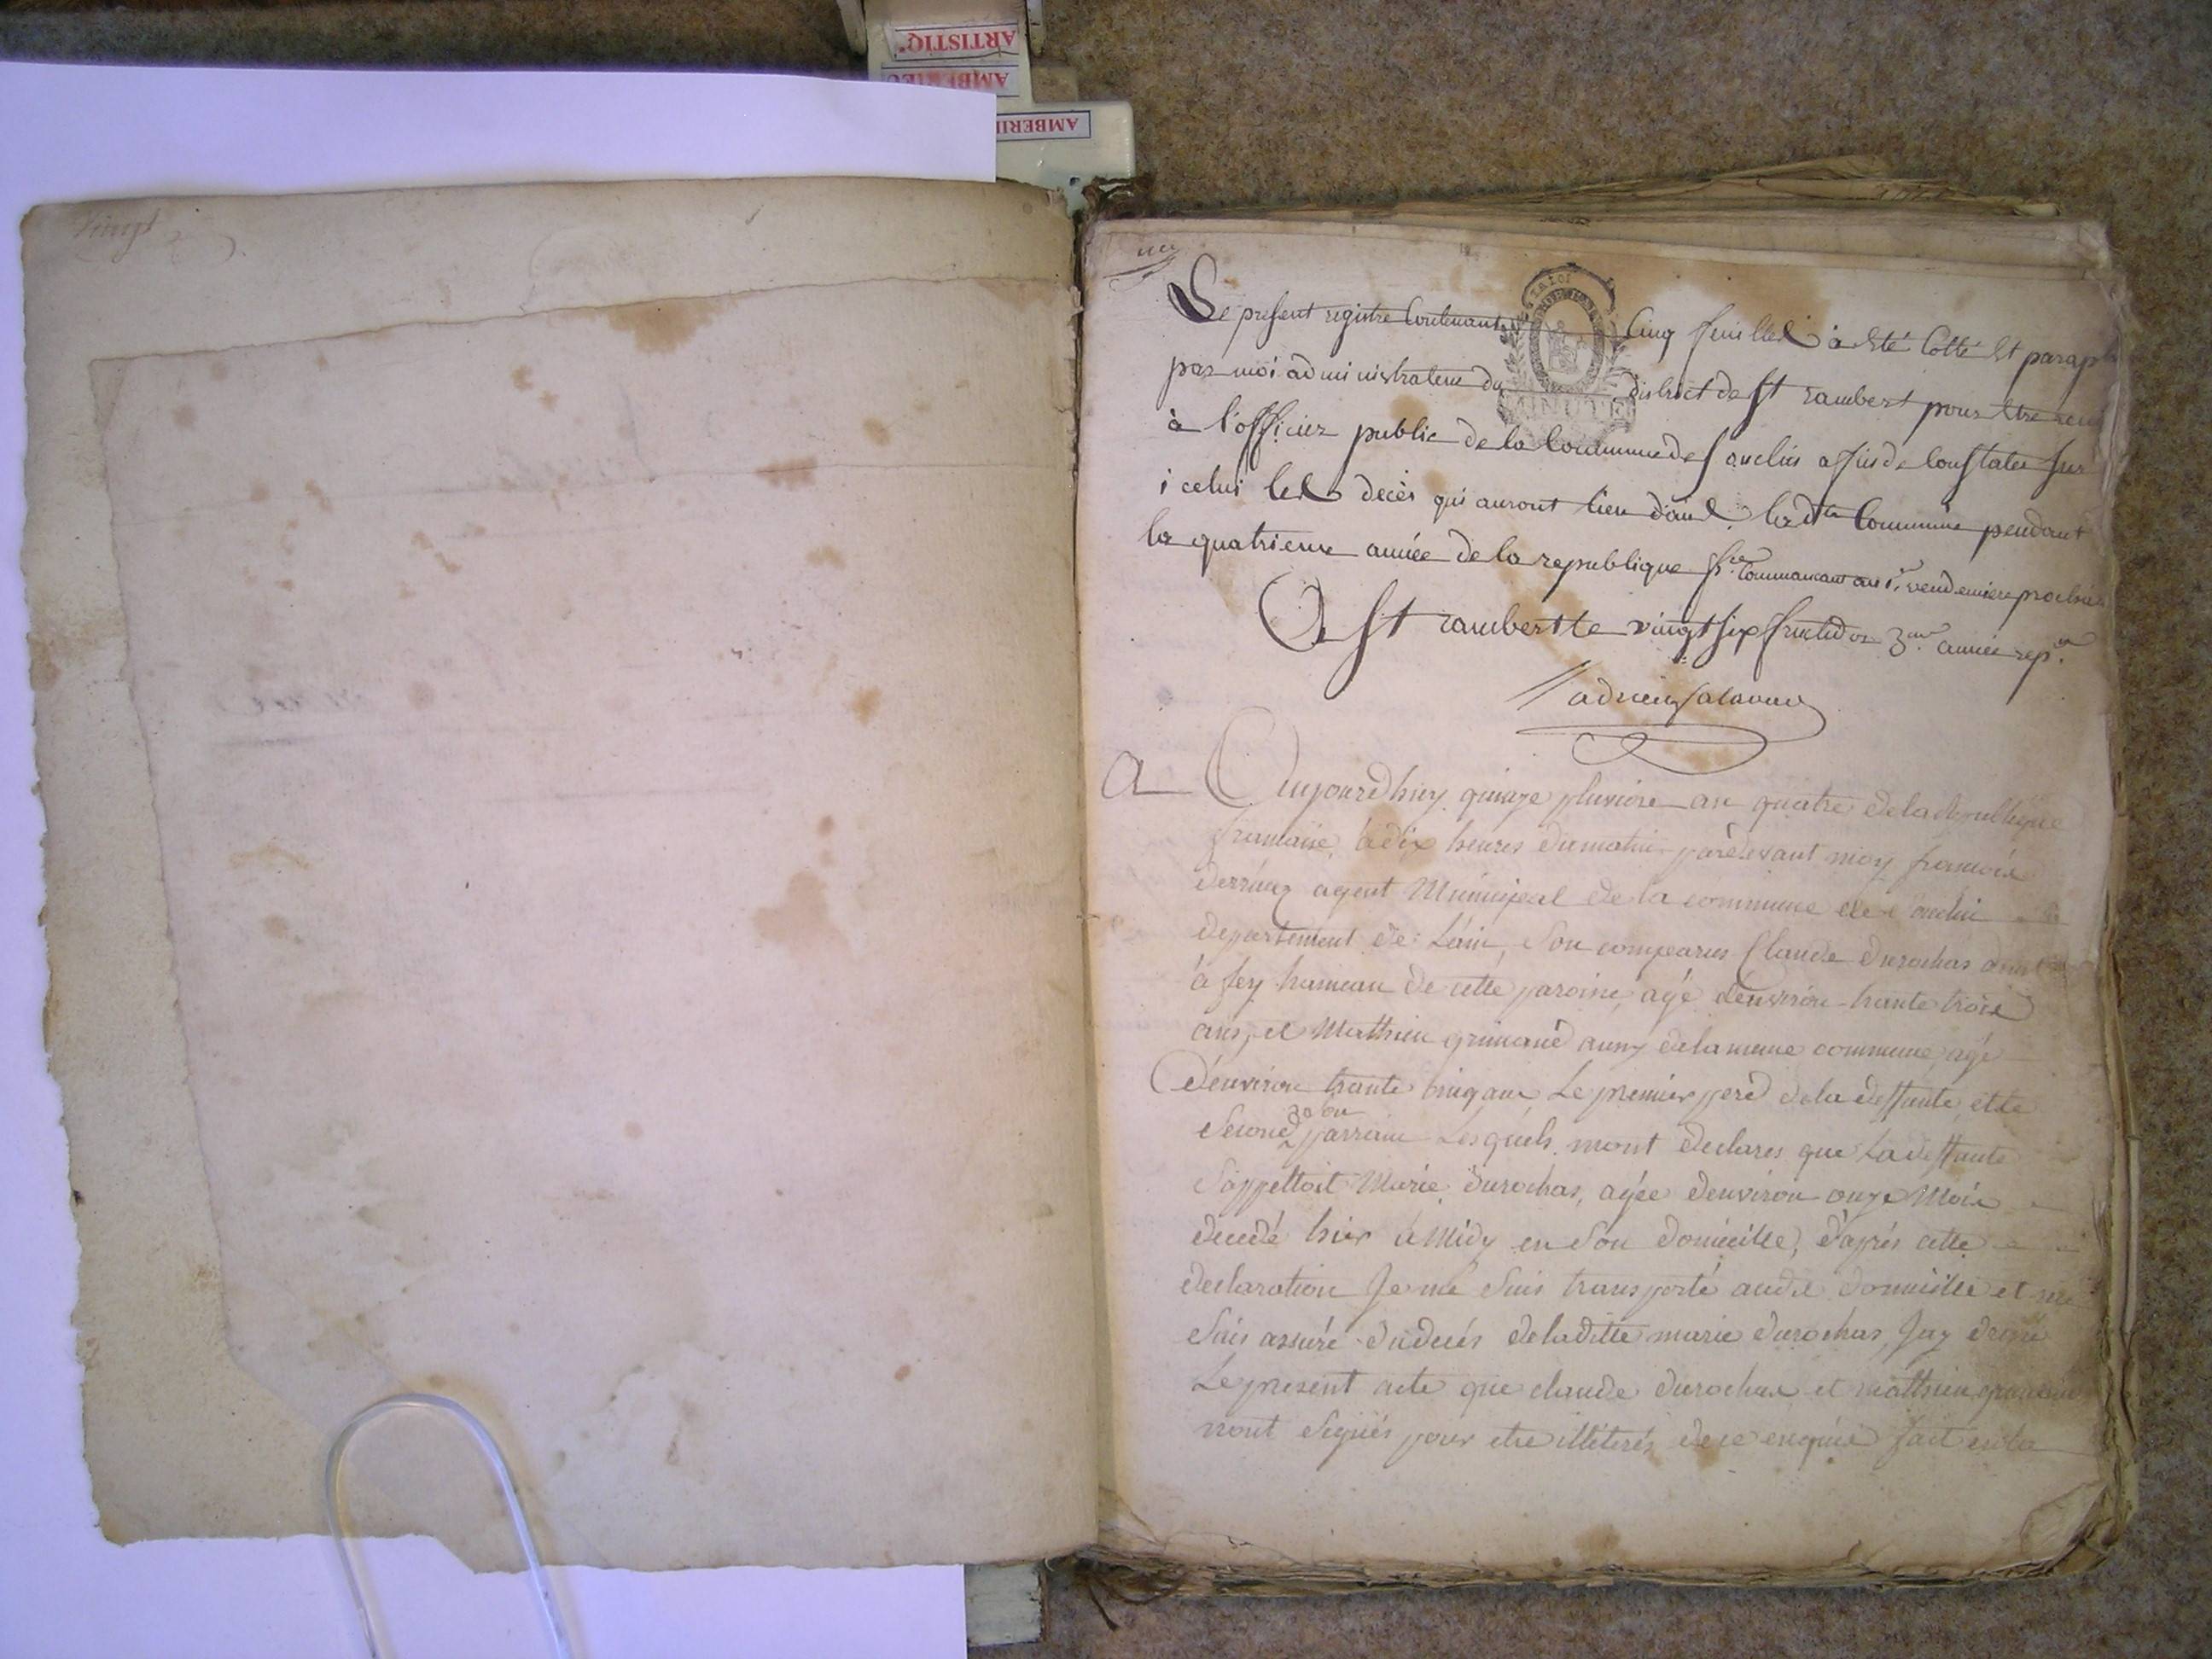 ARTISTIQ
AMBERIEU
AMBERI
vingt
un
Le present registre Contenant Cinq feuillet à eté Cotté et parap
LA LOI
MINUTE
par moi administrateur du district de St rambert pour etre
à l'officier public de la Commune de Souclin affin de Constater sur
icelui les decès qui auront lieu dans ladte Commune pendant
la quatrieme année de la republique fse Commancant au 1er vendemiere prochain
A St rambert le vingt six fructidor 3me année repne
a
Aujourd'huy quinze pluviose an quatre de la Republique
francaise, à dix heures du matin pardevant moy francois
agent Municipal de la commune de Souclin
departement de Lain, son comparus Claude durochas
à fey hameau de cette paroine, agé d'environ trante trois
ans, et Mathieu grimand aussy de la meme commune agé
d'environ trante cinq ans Le premier pere de la deffante, et le
Second parrain Lesquels mont declares que La deffante
S'appelloit Marie durochas, agée d'environ onze Mois
decedé hier a Midy en Son domicille, d'après cette
declaration Je me Suis transporté audit domicille et me
Suis assuré du decés de laditte marie durochas, Jay dressé
Le present acte que claude durochas et mathieu grimand
nont Signés pour etre illiterés de ce enquis fait en la